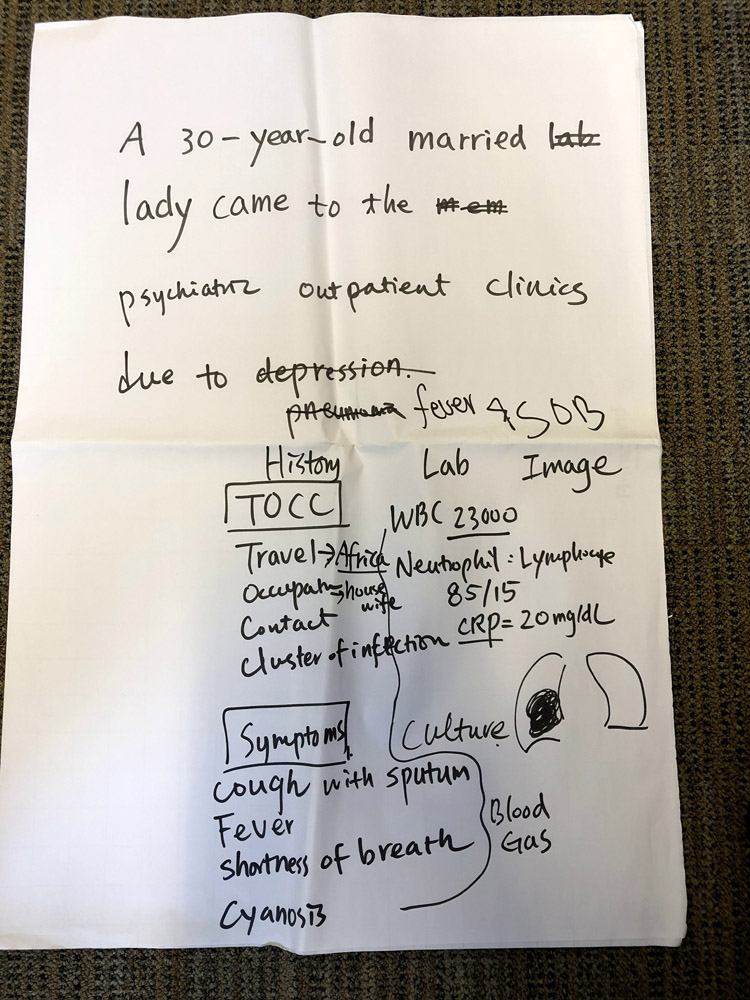 A 30-year-old married lab
lady came to the mem
psychiatric outpatient clinics
due to depression.
pneumonia fever & SOB
History Lab Image
TOCC
WBC 23000
Travel → Africa
Neutrophil : Lymphocyte
85/15
Occupat → house wife
Contact
CRP = 20 mg/dL
Cluster of infection
Symptoms
Culture
cough with sputum
Fever
Shortness of breath
Blood
Gas
Cyanosis